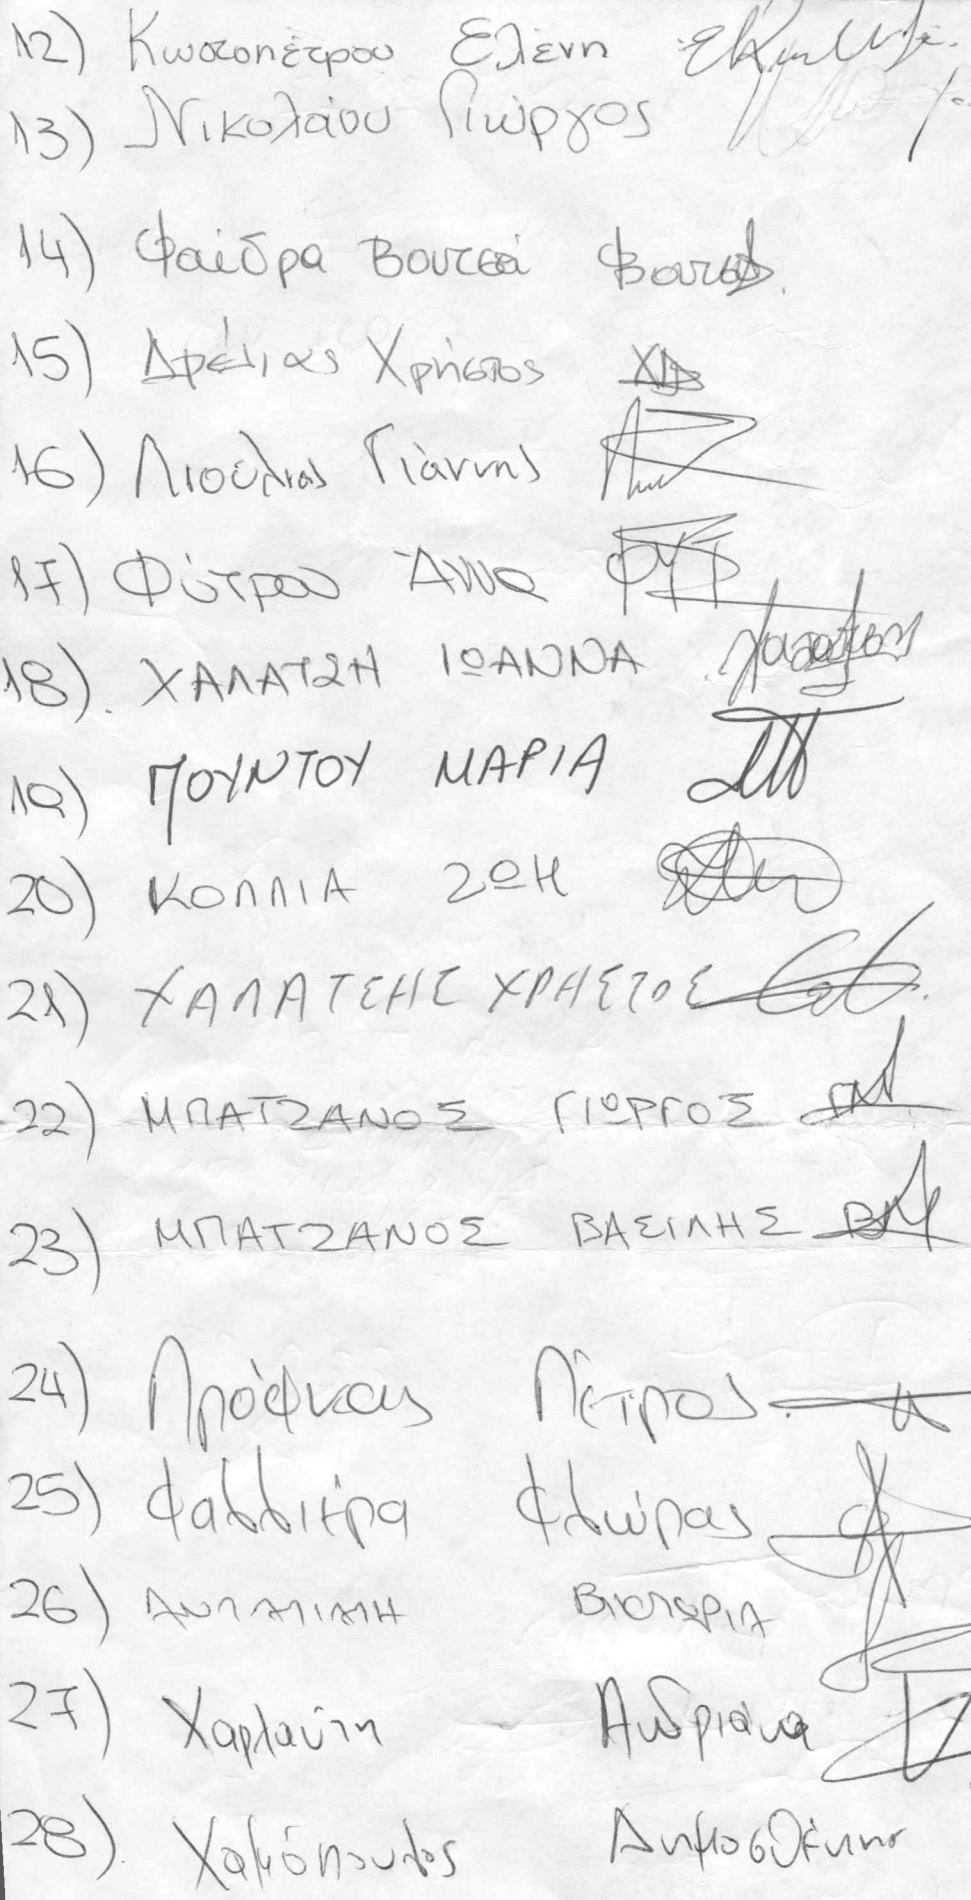 12) Κωστοπέτρου Ελένη
13) Νικολάου Γιώργος
14) Φαίδρα Βουτσά
15) Δρέλιας Χρήστος
16) Λιούλιας Γιάννης
17) Φύτρου Άννα
18). ΧΑΛΑΤΣΗ ΙΩΑΝΝΑ
19) ΠΟΥΝΤΟΥ ΜΑΡΙΑ
20) ΚΟΛΛΙΑ ΖΩΗ
21) ΧΑΛΑΤΣΗΣ ΧΡΗΣΤΟΣ
22) ΜΠΑΤΖΑΝΟΣ ΓΙΩΡΓΟΣ
23) ΜΠΑΤΖΑΝΟΣ ΒΑΣΙΛΗΣ
24) Πέτρος
25) Φλώρας
26) Βικτωρια
27) Χαρλαύτη Ανδριάνα
28). Χαμόπουλος Δημοσθένης